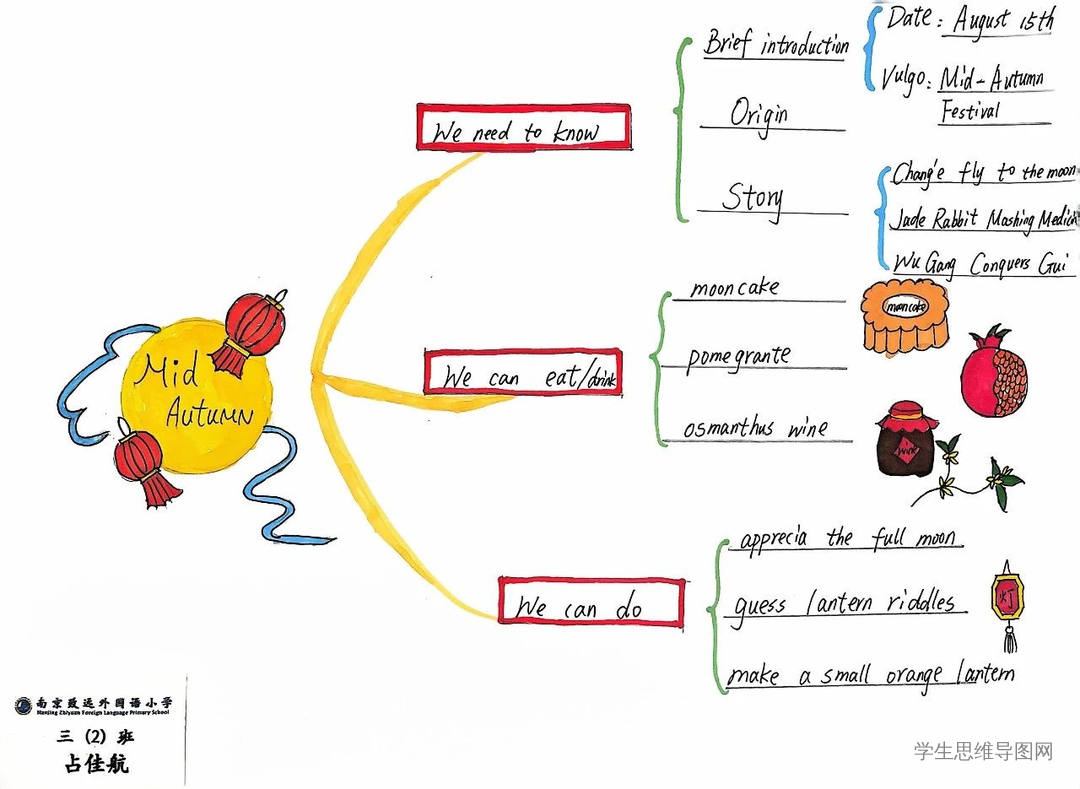 Mid
Autumn
We need to know
Brief introduction
Date: August 15th
Vulgo: Mid-Autumn
Festival
Origin
Story
Chang'e fly to the moon
Jade Rabbit Mashing Medicin
Wu Gang Conquers Gui
We can eat/drink
mooncake
mooncake
pomegrante
osmanthus wine
wine
We can do
apprecia the full moon
guess lantern riddles
灯
make a small orange lantern
南京致远外国语小学
Nanjing Zhiyuan Foreign Language Primary School
三（2）班
占佳航
学生思维导图网